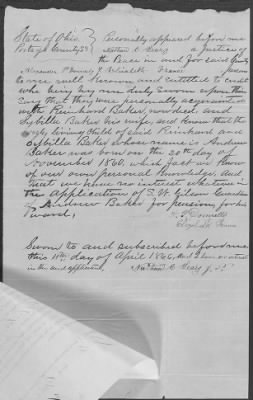 State of Ohio Personally appeared before me
Portage County SS Nathan C a Justice of
the Peace in and for said County
Alexander Elizabeth persons
to me well known and entitled to credit
who being by me duly Sworn upon their
Say that they were personally acquainted
with Reinhard Baker deceased and
Sybilla Baker his wife, and know that the
only living child of said Reinhard and
Sybilla Baker whose name is Andrew
Baker was born on the 20th day of
November 1860, which fact we know
of our own personal knowledge, and
that we have no interest whatever in
the application of Wilson Guardian
of Andrew Baker for pension for his
Ward,
Sworn to and subscribed before me
this day of April 1866, And I have no interest
in the said application.